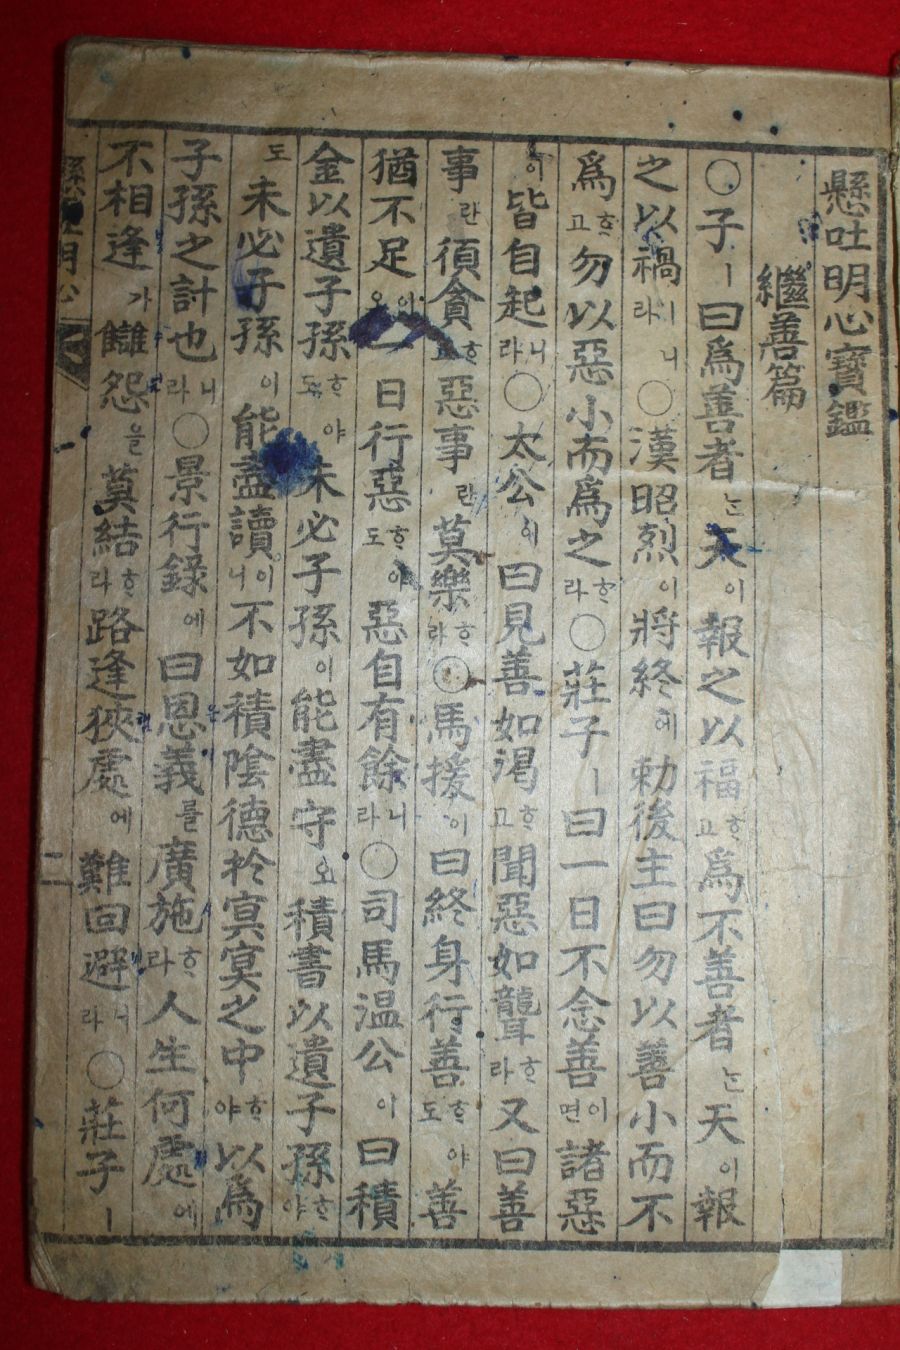 懸吐明心寶鑑
繼善篇
○子ㅣ曰爲善者ᄂᆞᆫ天이報之以福ᄒᆞ고爲不善者ᄂᆞᆫ天이報
之以禍ㅣ니라○漢昭烈이將終에勅後主曰勿以善小而不
爲ᄒᆞ고勿以惡小而爲之ᄒᆞ라○莊子ㅣ曰一日不念善이면諸惡
이皆自起니라○太公이曰見善如渴ᄒᆞ고聞惡如聾ᄒᆞ라又曰善
事란須貪ᄒᆞ고惡事란莫樂ᄒᆞ라○馬援이曰終身行善ᄒᆞ야도善
猶不足이오一日行惡ᄒᆞ야도惡自有餘니라○司馬温公이曰積
金以遺子孫ᄒᆞ야도未必子孫이能盡守오積書以遺子孫ᄒᆞ야
도未必子孫이能盡讀이니不如積陰德於冥冥之中ᄒᆞ야以爲
子孫之計也니라○景行錄에曰恩義를廣施ᄒᆞ라人生何處에
不相逢가讎怨을莫結ᄒᆞ라路逢狹處에難回避니라○莊子ㅣ